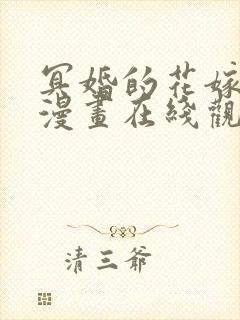 冥婚的花嫁
漫畫在綫觀
清三爺